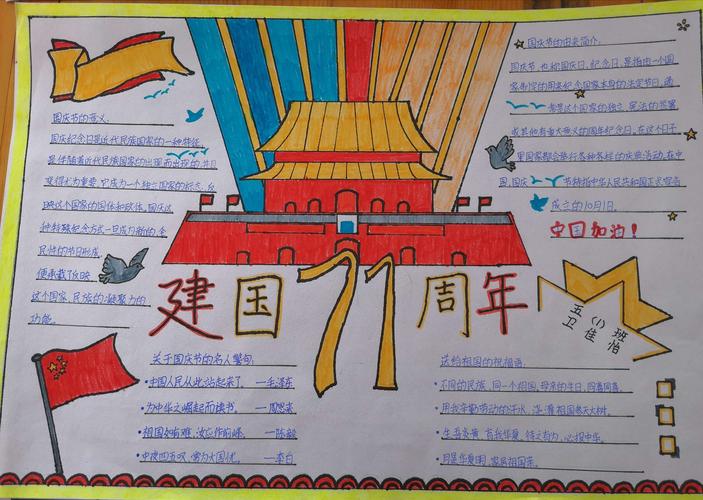 国庆节的意义:
国庆纪念日是近代民族国家的一种特征,
是伴随着近代民族国家的出现而出现的,并且
变得尤为重要.它成为一个独立国家的标志,反
映这个国家的国体和政体.国庆这
种特殊纪念方式一旦成为新的、全
民性的节日形式,
便承载了反映
这个国家、民族的凝聚力的
功能。
国庆节的由来简介:
国庆节也称国庆日、纪念日,是指由一个国
家制定的用来纪念国家本身的法定节日.通
常是这个国家的独立、宪法的签署
或其他有重大意义的周年纪念日.在这个日子
里国家都会举行各种各样的庆典活动.在中
国,国庆节特指中华人民共和国正式宣告
成立的10月1日。
中国加油!
建国71周年
五(1)班
卫佳怡
关于国庆节的名人警句:
·中国人民从此站起来了。—毛泽东
·为中华之崛起而读书。—周恩来
·祖国如有难,汝应作前锋。—陈毅
·中夜四五叹,常为大国忧。—李白
送给祖国的祝福语:
·不同的民族,同一个祖国,母亲的生日,同喜同喜。
·用我辛勤劳动的汗水,浇灌祖国参天大树。
·生吾炎黄,育我华夏,待之有为,必报中华。
·月是华夏明,家是祖国亲。